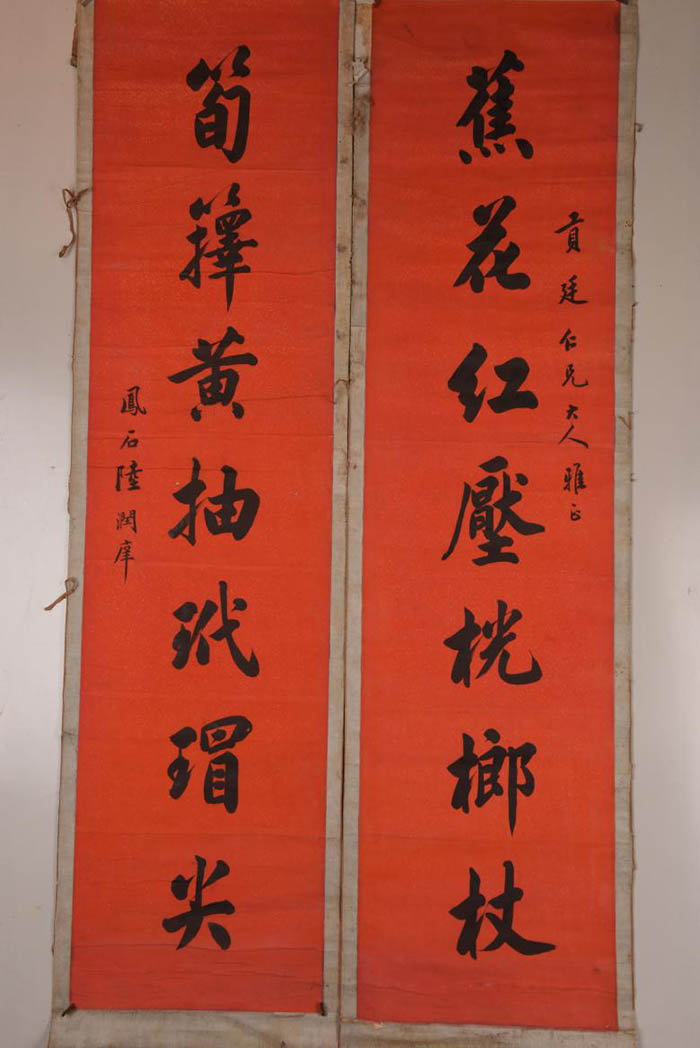 貢廷仁兄大人雅正
蕉花紅壓桄榔杖
筍籜黄抽玳瑁尖
鳳石陸潤庠